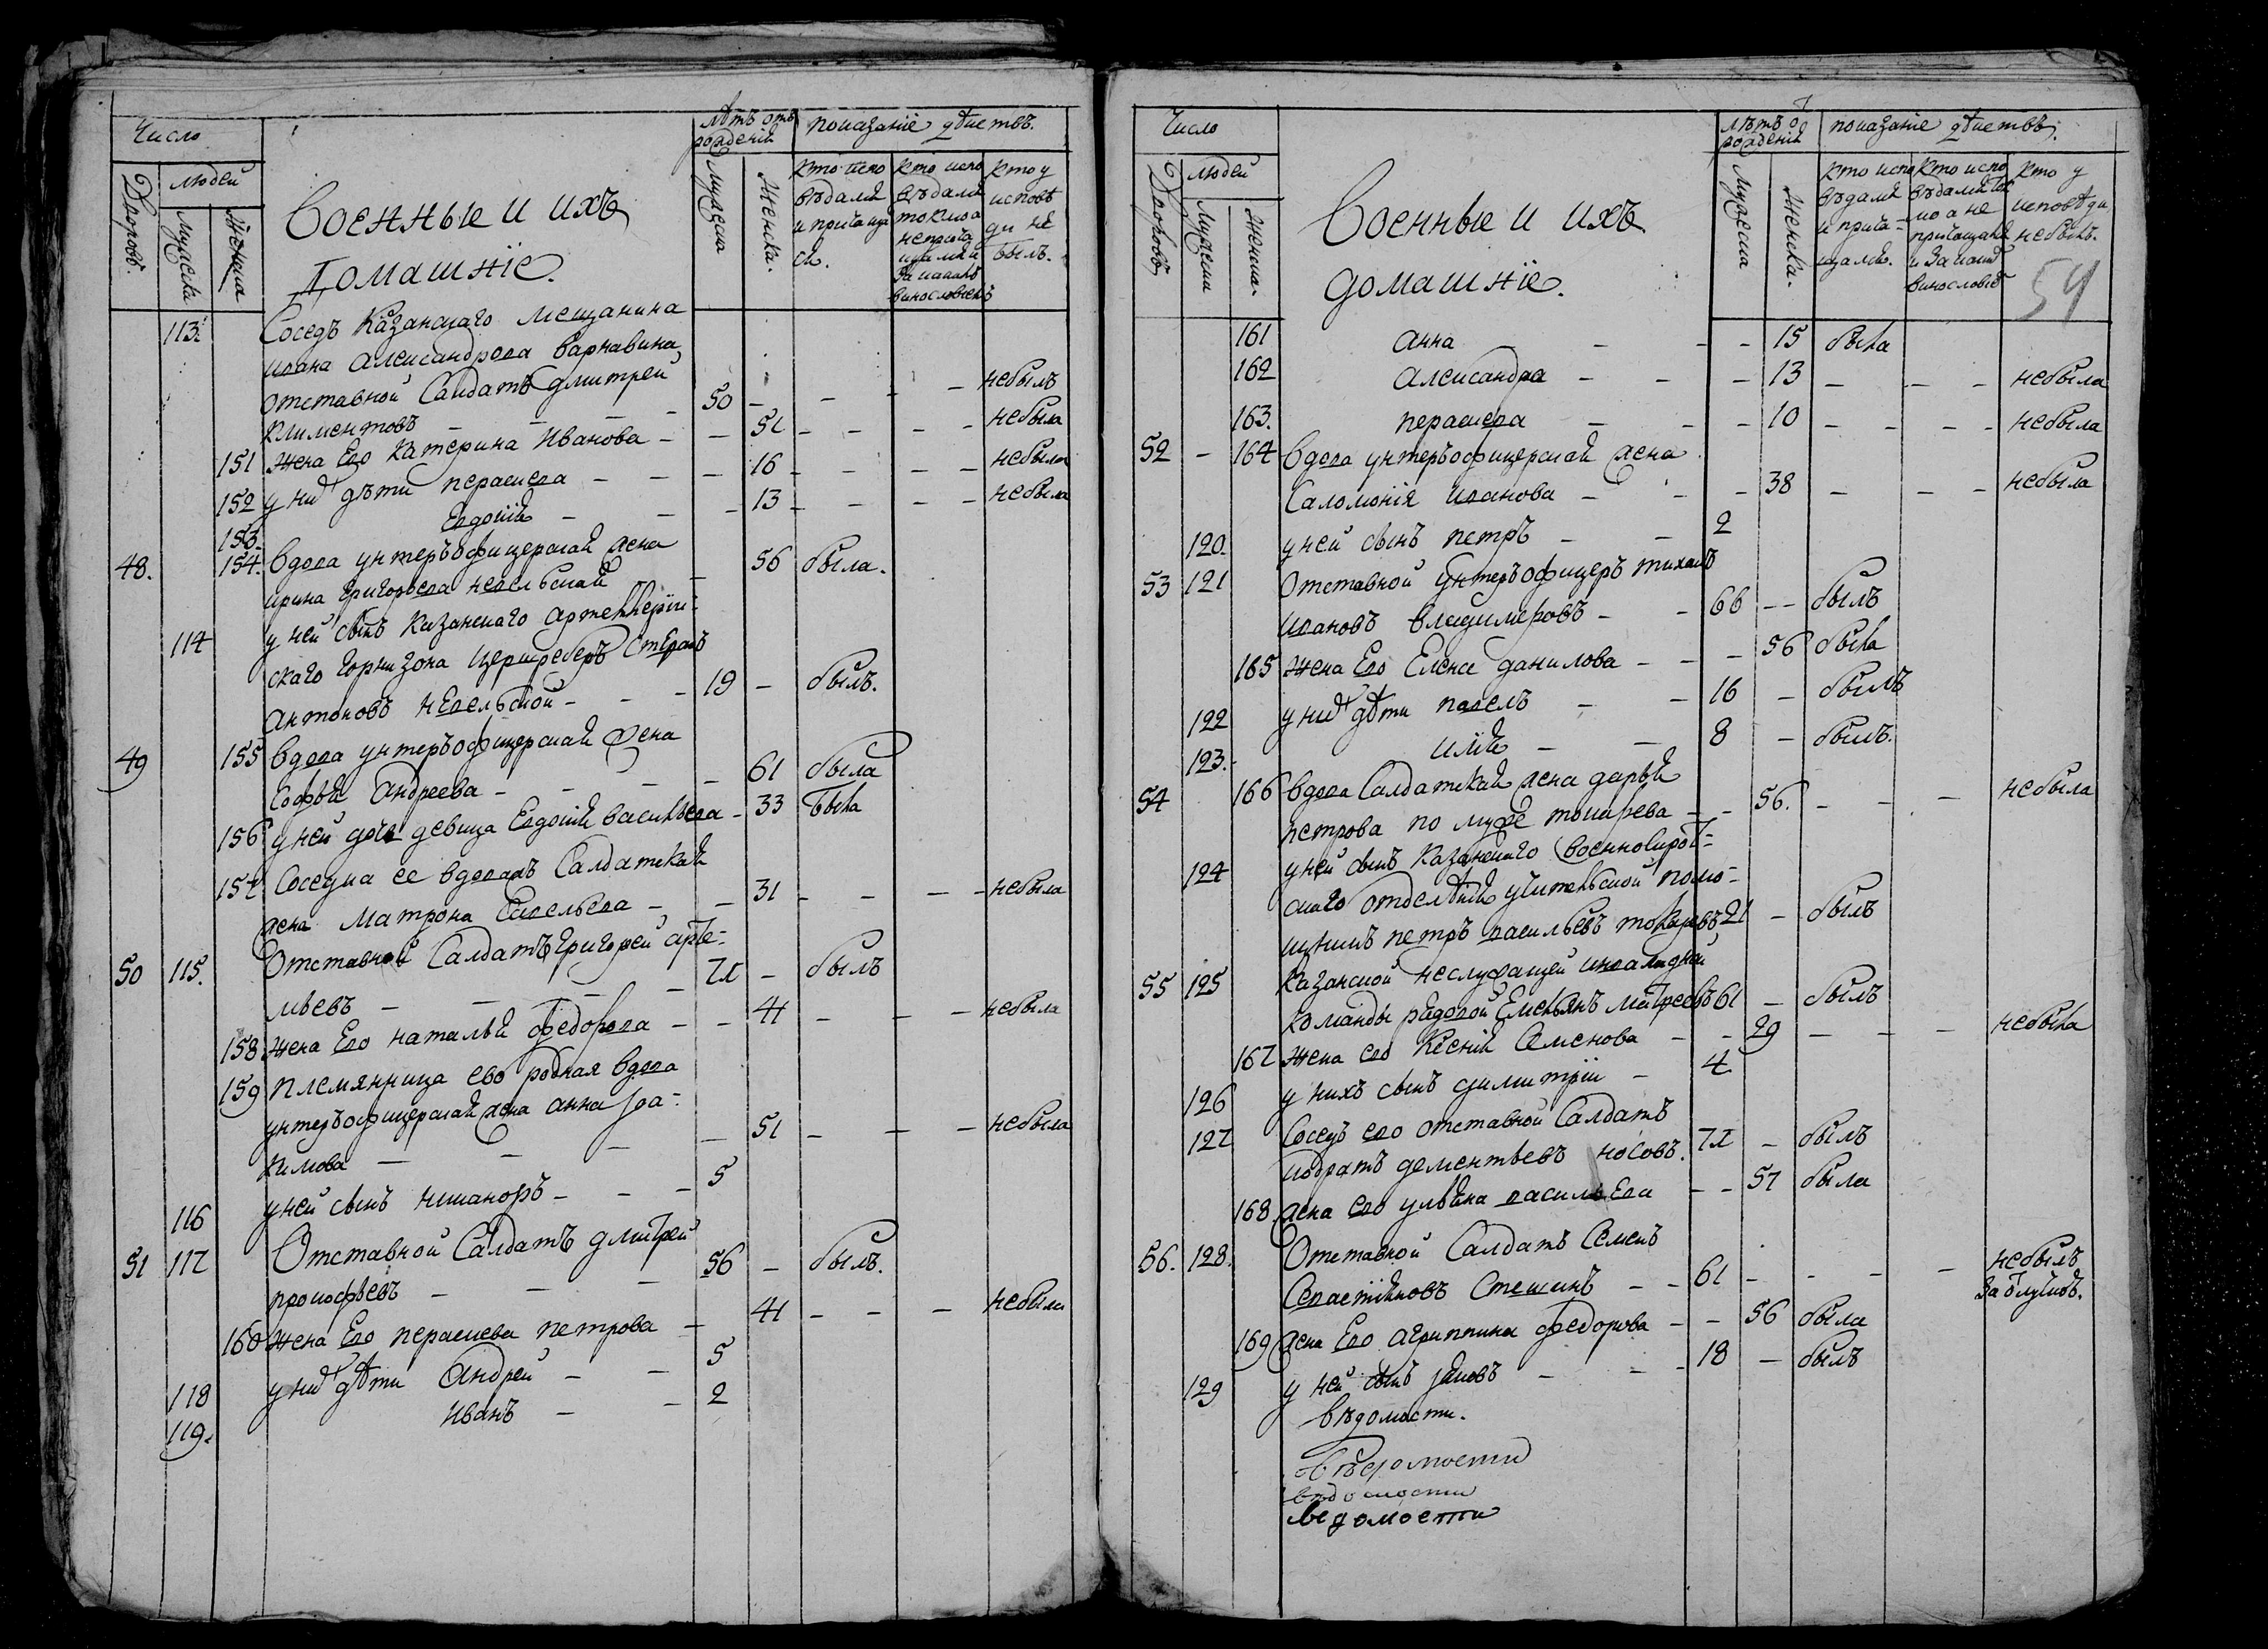 Число
Лѣтъ отъ рожденїя
показанїе дѣйствъ.
Дворовъ.
людей
Мужеска
Женска
Военные и ихъ
Домашнїе.
Мужеска
Женска.
кто испо
вѣдалися
и причащал
ся.
кто испо
вѣдалися
токмо а
неприча
щался и
за какимъ
винословіемъ
кто у
исповѣ
ди не
былъ.
113. Соседъ Казанскаго мещанина
ивана александрова варнавина
отставной Салдатъ дмитрей
климентовъ - - - 50 - - - - небылъ
151 Жена Его Катерина Иванова - - 51 - - - - небыла
152 у них дѣти парасковья - - - 16 - - - - небыла
153. Евдокія - - - 13 - - - - небыла
48. 154. вдова унтеръофицерская жена
ирина григорьева невельская - 56 была.
114 у ней сынъ казанскаго артеллерїй-
скаго гарнизона Степанъ
антоновъ невельской - - - 19 - былъ.
49 155 вдова унтеръофицерская жена
софья андреева - - - - - 61 была
156. у ней дочь девица Евдокія васильева - 33 была
157. Соседка ее вдовая Салдатская
жена матрона савельева - - 31 - - - - небыла
50 115. Отставной Салдатъ григорей арте-
мьевъ - - - - 71 - былъ
158 жена Его наталья федорова - - 41 - - - небыла
159 племянница ево родная вдова
унтеръофицерская жена анна Іоа-
кимова - - - - 51 - - - небыла
116 у ней сынъ никаноръ - - - 5
51 117 Отставной Салдатъ дмитрей
прокофьевъ - - - 56 - былъ.
160 жена Его параскева петрова - 41 - - - небыла
118 у них дѣти Андрей - - 5
119. иванъ - - 2
Число
лѣтъ о рожденїя
показанїе дѣйствъ.
Дворовъ,
людей
Мужеска
Женска.
Военные и ихъ
домашнїе.
Мужеска
Женска.
кто испо
вѣдался
и прича-
щался.
кто испо
вѣдался ток
мо а не
причащался
и за каким
винословіем
кто у
исповѣди
небылъ.
54
161 анна - - - - 15 была
162 александра - - - 13 - - - небыла
163. параскева - - - 10 - - - - небыла
52 - 164 вдова унтеръофицерская жена
Саломонїя иванова - - - 38 - - - небыла
120. у ней сынъ петръ - - 2
53 121 Отставной унтеръофицеръ михаилъ
ивановъ владимеровъ - - 66 - - былъ
165 жена Его Елена данилова - - - 56 была
122 у них дѣти павелъ - - 16 - былъ
123. илья - - 8 - былъ.
54 166 вдова Салдатская жена дарья
петрова по муже токарева - - 56. - - - небыла
124 у ней сынъ казанскаго военносирот-
скаго отделѣнія учительской помо-
щникъ петръ васильевъ токаревъ 21 - былъ
55 125 казанской неслужащей инвалидной
команды рядовой Емельянъ матвеевъ 61 - былъ
167 жена его Ксенія Семенова - - 29 - - - небыла
126 у нихъ сынъ димитрїи - 4
127 Соседъ его отставной Салдатъ
кодратъ дементьевъ носовъ. 71 - былъ
168 жена его ульяна васильева - - 57 была
56. 128. Отставной Салдатъ Семенъ
Севастїяновъ Стешинъ - - 61 - - - - небылъ
за отлучкою.
169 жена Его агриппина федорова - - 56 была
129 у ней сынъ яковъ - - - 18 - былъ
вѣдомости.
вѣдомости
вѣдомости
ведомости